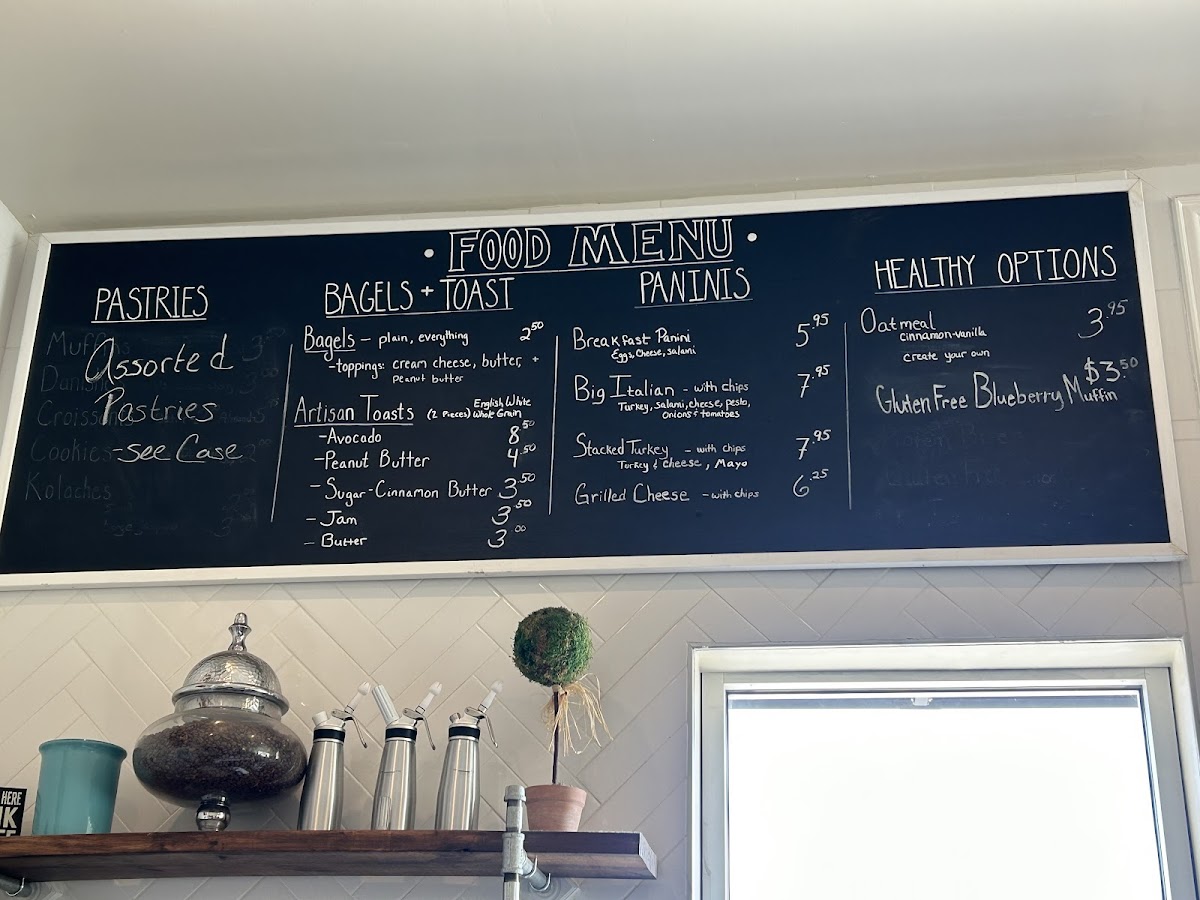 • FOOD MENU •
PASTRIES
Muffins
Assorted
Danish
Pastries
Croissants
Cookies
- see Case
Kolaches
BAGELS + TOAST
Bagels - plain, everything 2.50
- toppings: cream cheese, butter, +
peanut butter
Artisan Toasts (2 Pieces) English White
Whole Grain
- Avocado 8.50
- Peanut Butter 4.50
- Sugar-Cinnamon Butter 3.50
- Jam 3.50
- Butter 3.00
PANINIS
Breakfast Panini 5.95
Eggs, Cheese, Salami
Big Italian - with chips 7.95
Turkey, salami, cheese, pesto,
onions & tomatoes
Stacked Turkey - with chips 7.95
Turkey & cheese, Mayo
Grilled Cheese - with chips 6.25
HEALTHY OPTIONS
Oatmeal 3.95
cinnamon-vanilla
create your own
Gluten Free Blueberry Muffin $3.50
Gluten Free
HERE